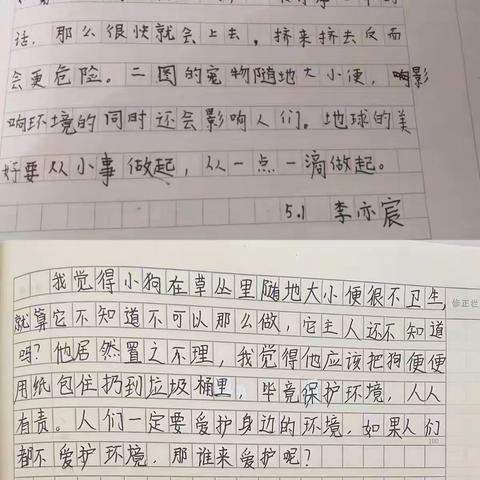 话，那么很快就会上去，挤来挤去反而
会更危险。二图的宠物随地大小便，响影
响环境的同时还会影响人们。地球的美
好要从小事做起，从一点一滴做起。
5.1 李亦宸
我觉得小狗在草丛里随地大小便很不卫生，
就算它不知道不可以那么做，它主人还不知道
吗？他居然置之不理，我觉得他应该把狗便便
用纸包住扔到垃圾桶里，毕竟保护环境，人人
有责。人们一定要爱护身边的环境，如果人们
都不爱护环境，那谁来爱护呢？
修正栏
100